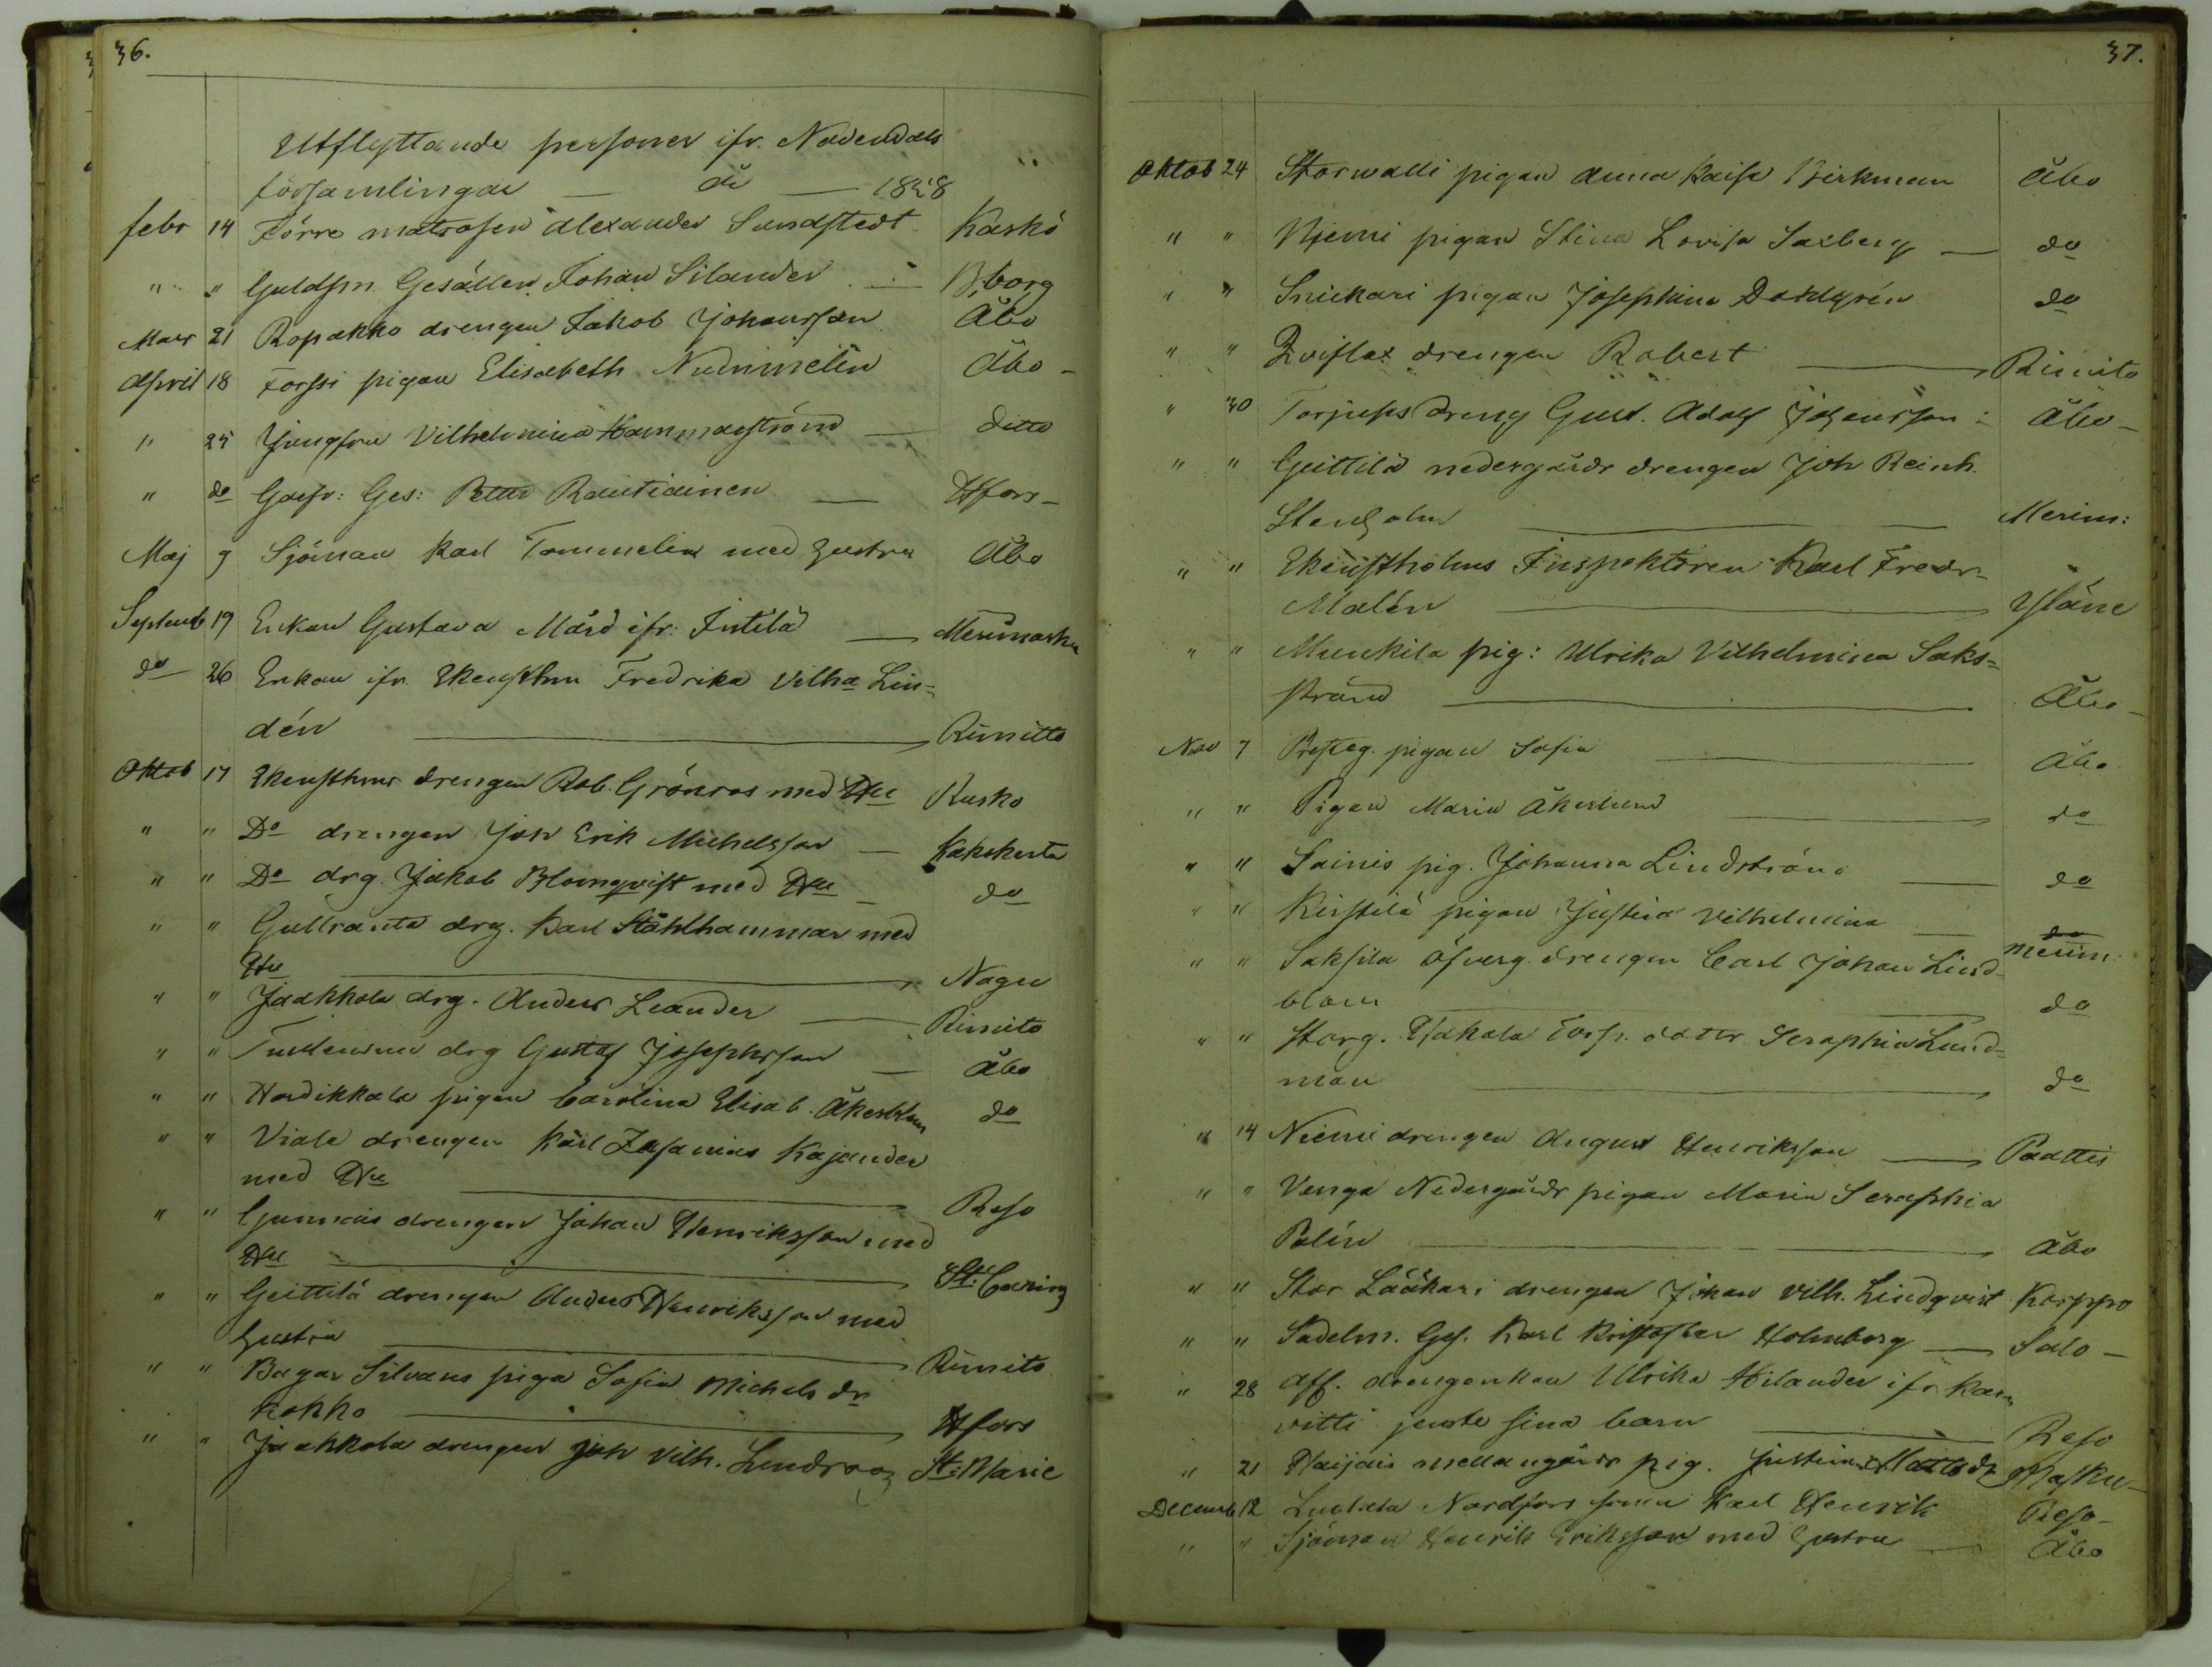 36.
Utflyttande personer ifr. Nådendals
församlingar — år — 1858
febr 14 Förre matrosen Alexander Sundstedt Kaskö
" " Guldsm. Gesällen Johan Silander — B,borg
Mars 21 Ropakko drengen Jakob Johansson Åbo
April 18 Forssi pigan Elisabeth Nummelin Åbo –
" 25 Jungfru Vilhelmina Hammarström — ditto
" do Garfv: Ges: Petter Rautiainen — Hfors –
Maj 9 Sjöman Karl Tommelin med hustru Åbo
Septemb 19 Enkan Gustava Mård ifr: Intilä — Merimasku
do 26 Enkan ifr. Ekensthm Fredrika Vilha Lin=
dén — Rimitto
Oktob 17 Ekensthms drengen Rob. Grönros med Hu Rusko
" " Do drengen Joh Erik Michelsson — Kakskerta
" " Do drg Jakob Blomqvist med Hu – do
" " Gullranta drg. Karl Ståhlhammar med
Hu — Nagu
" " Jaakkola drg. Anders Leander — Rimito
" " drg Gustaf Josephsson — Åbo
" " pigan Carolina Elisab. Åkerblom do
" " Viale drengen Karl Zasanias Kajander
med Hu — Reso
" " Gunnais drengen Johan Henriksson med
Hu — St: Caring
" " Geittilä drengen Anders Henriksson med
hustru — Rimito
" " Bagar Silvans piga Sofia Michels dr
Kokko — Hfors
" " Jaakkola drengen Joh Vilh. Lindroos St: Marie
37.
Oktob 24 Storwalli pigan Anna Kaisa Birkman Åbo
" " Njemi pigan Stina Lovisa Saxberg — do
" " Snickari pigan Josephina Dahlgrén do
" " drengen Robert — Rimito
" 30 dreng Gust. Adolf Johansson – Åbo –
" " Geittilä nedergårds drengen Joh Reinh.
Stenholm — Merim:
" " Ekenstholms Inspektoren Karl Fredr.
Malén — Yläne
" " Munkila pig: Ulrika Vilhelmina Saks=
strand — Åbo –
Nov 7 Presteg. pigan Sofia — Åbo
" " Pigan Maria Åkerlund — do
" " Sainis pig. Johanna Lindström — do
" " Kirstilä pigan Justina Vilhelmina — do
" " Saksila öfverg. drengen Carl Johan Lind= Merim
blom — do
" " Storg. Torp. dotter Seraphia Lund=
man — do
" 14 Niemi drengen August Henriksson — Paattis
" " Venga Nedergårds pigan Maria Seraphia
Polén — Åbo
" " Stor Lääkari drengen Johan Vilh. Lindqvist Korppo
" " Sadelm. Ges. Karl Kristoffer Holmberg — Salo –
" 28 Aff. drengenkan Ulrika Hilander ifr. Kar
vitti jemte sina barn — Reso
" 21 Haijais mellangårds pig. Justina Matts dr Masku –
Decemb 12 Luolala Nordfors sonen Karl Henrik Reso –
" " Sjöman Henrik Eriksson med hustru — Åbo